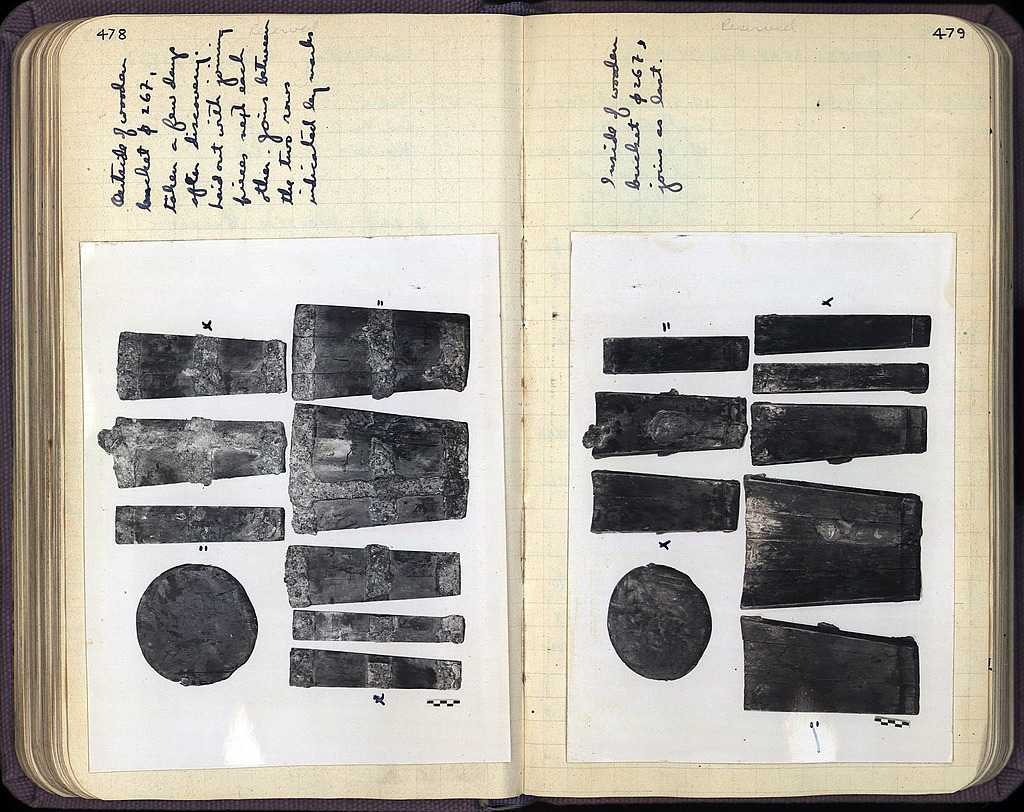 478
Reserved
Outside of wooden
bucket φ 267,
taken a few days
after discovery.
Laid out with joining
pieces next each
other. Joins between
the two rows
indicated by marks
x
=
=
x
479
Reserved
Inside of wooden
bucket φ 267,
joins as last.
=
x
x
=